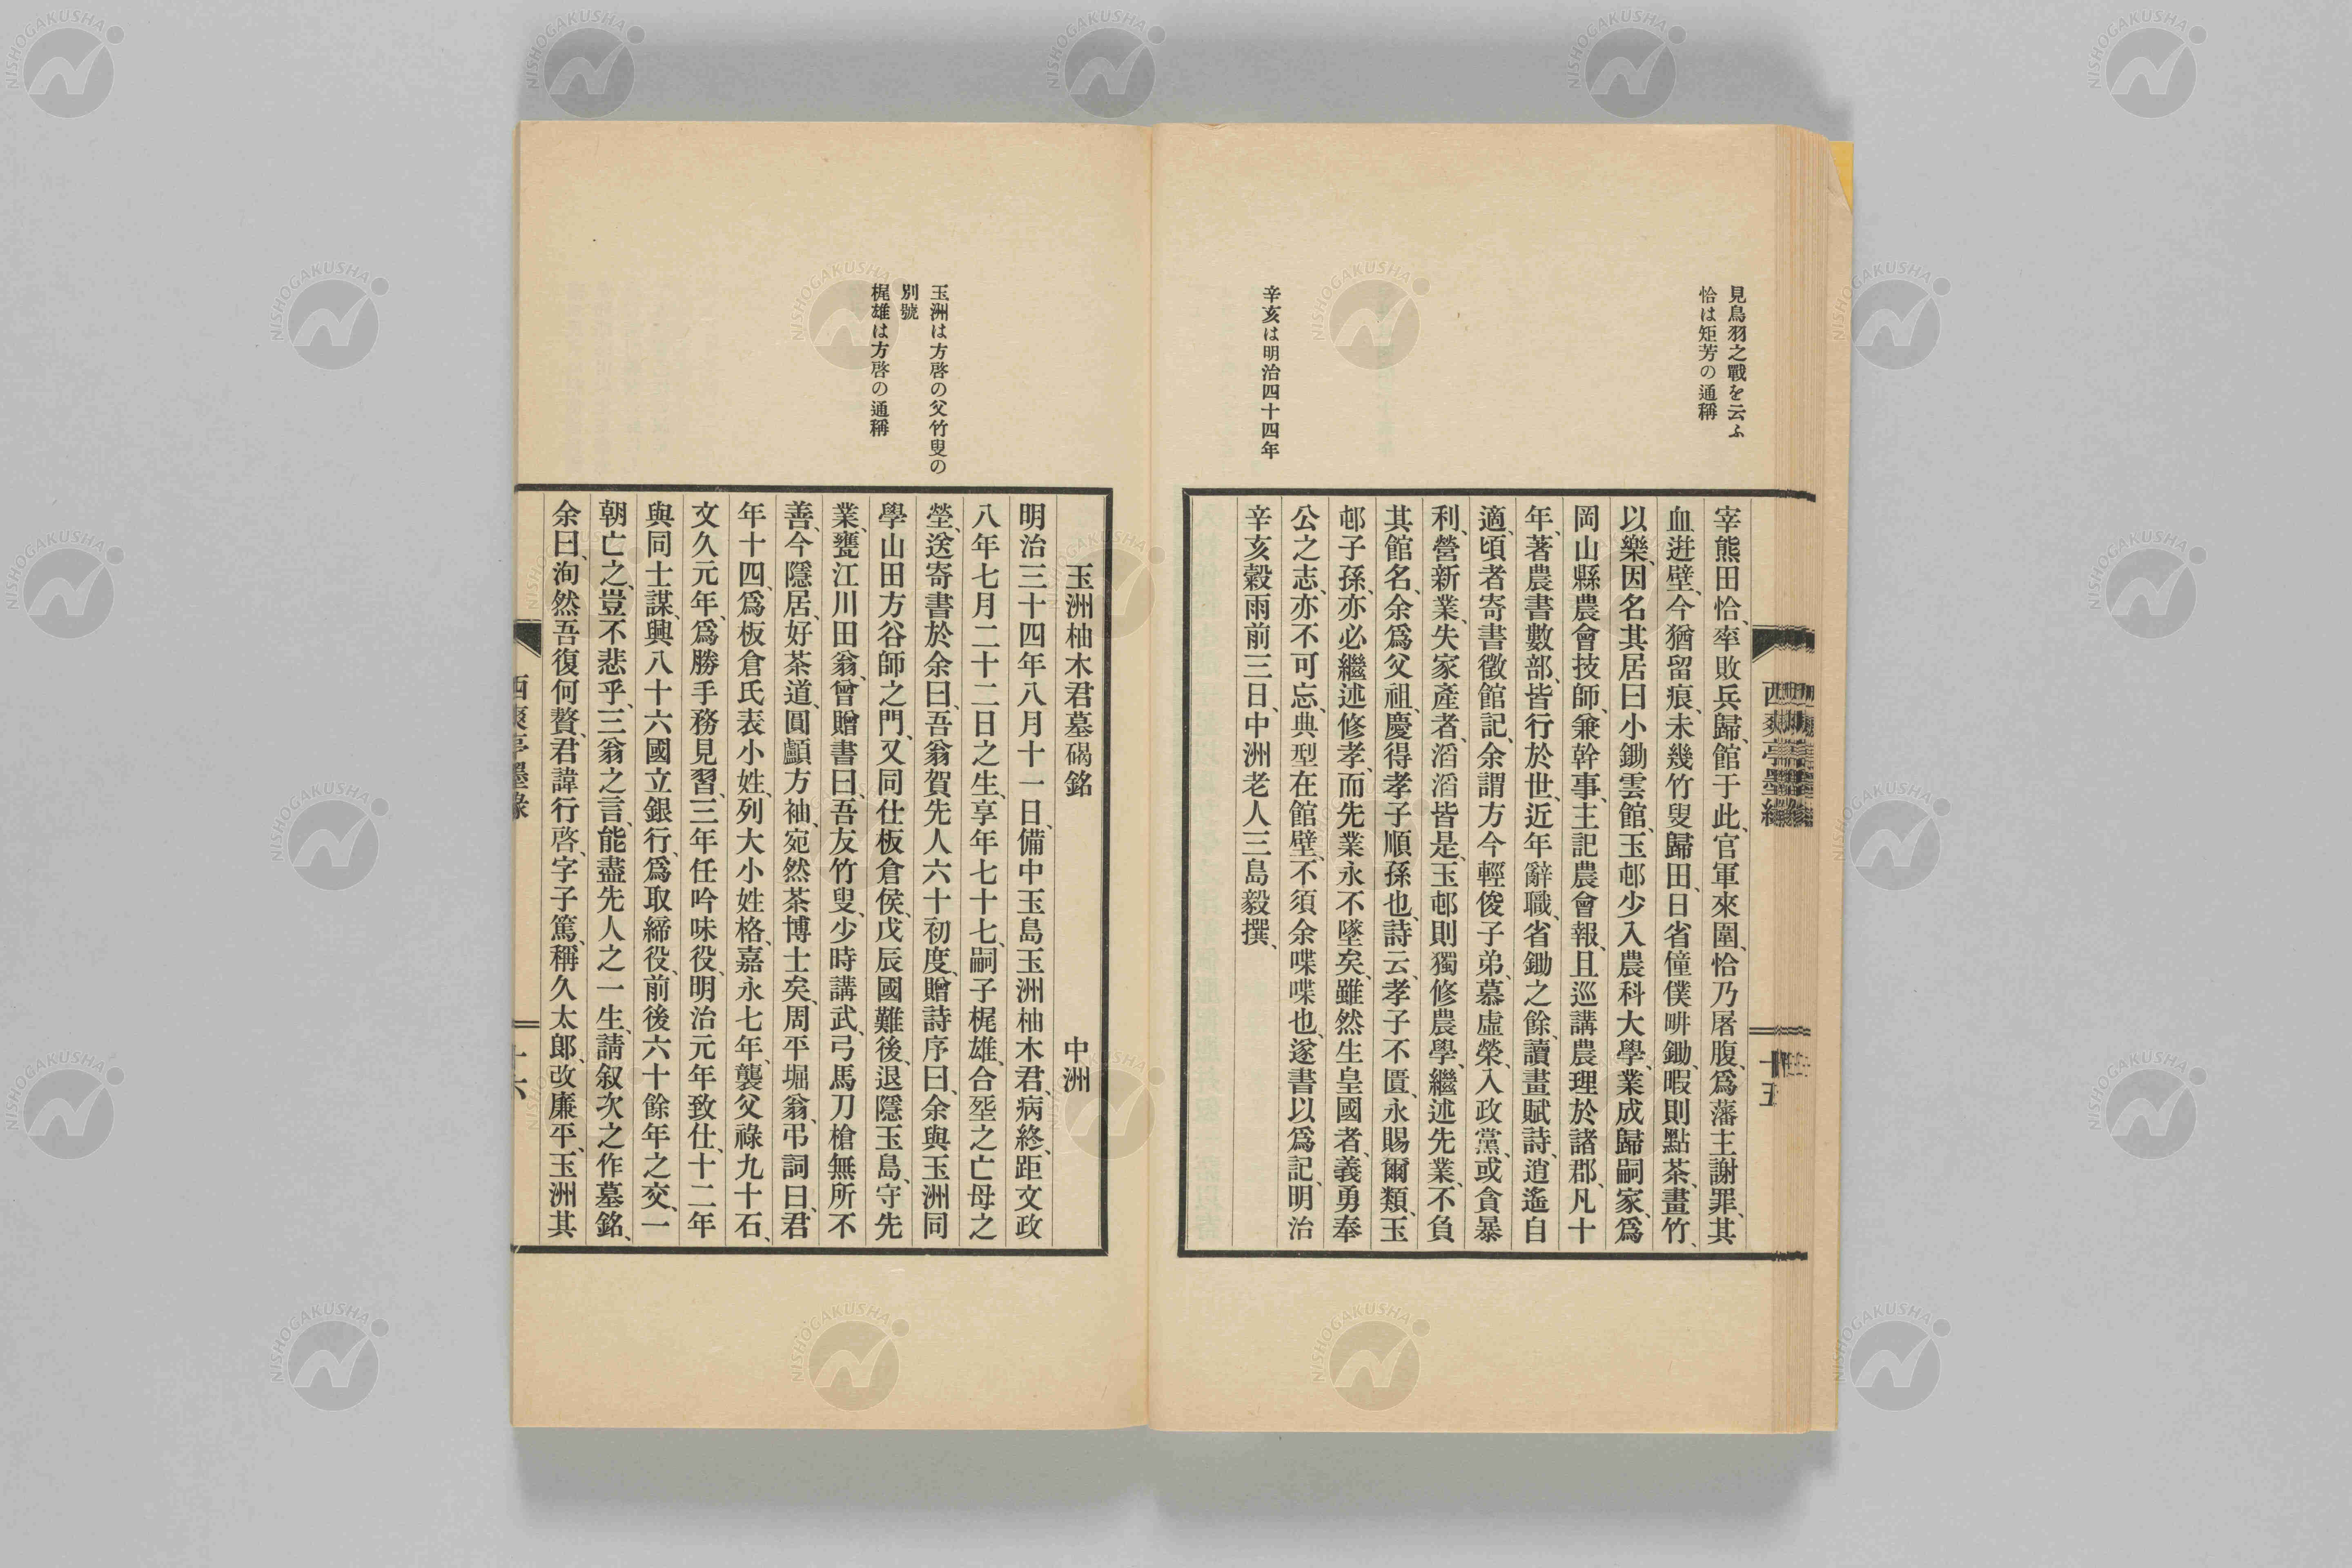 見鳥羽之戰を云ふ
恰は矩芳の通稱
辛亥は明治四十四年
宰熊田恰、率敗兵歸、館于此、官軍來圍、恰乃屠腹、爲藩主謝罪、其
血迸壁、今猶留痕、未幾竹叟歸田、日省僮僕畊鋤、暇則點茶、畫竹、
以樂、因名其居曰小鋤雲館、玉邨少入農科大學、業成歸嗣家、爲
岡山縣農會技師、兼幹事、主記農會報、且巡講農理於諸郡、凡十
年、著農書數部、皆行於世、近年辭職、省鋤之餘、讀畫賦詩、逍遙自
適、頃者寄書徵館記、余謂方今輕俊子弟、慕虛榮、入政黨、或貪暴
利、營新業、失家產者、滔滔皆是、玉邨則獨修農學、繼述先業、不負
其館名、余爲父祖、慶得孝子順孫也、詩云、孝子不匱、永賜爾類、玉
邨子孫、亦必繼述修孝、而先業永不墜矣、雖然生皇國者、義勇奉
公之志、亦不可忘、典型在館壁、不須余喋喋也、遂書以爲記、明治
辛亥穀雨前三日、中洲老人三島毅撰、
西爽亭墨緣
十五
玉洲は方啓の父竹叟の
別號
梶雄は方啓の通稱
玉洲柚木君墓碣銘 中洲
明治三十四年八月十一日、備中玉島玉洲柚木君、病終、距文政
八年七月二十二日之生、享年七十七、嗣子梶雄、合塟之亡母之
塋、送寄書於余曰、吾翁賀先人六十初度、贈詩序曰、余與玉洲同
學山田方谷師之門、又同仕板倉侯、戊辰國難後、退隱玉島、守先
業、甕江川田翁、曾贈書曰、吾友竹叟、少時講武、弓馬刀槍無所不
善、今隱居、好茶道、圓顱方袖、宛然茶博士矣、周平堀翁、弔詞曰、君
年十四、爲板倉氏表小姓、列大小姓格、嘉永七年、襲父祿九十石、
文久元年、爲勝手務見習、三年任吟味役、明治元年致仕、十二年
與同士謀、興八十六國立銀行、爲取締役、前後六十餘年之交、一
朝亡之、豈不悲乎、三翁之言、能盡先人之一生、請叙次之作墓銘、
余曰、洵然吾復何贅、君諱行啓、字子篤、稱久太郎、改廉平、玉洲其
西爽亭墨緣
十六